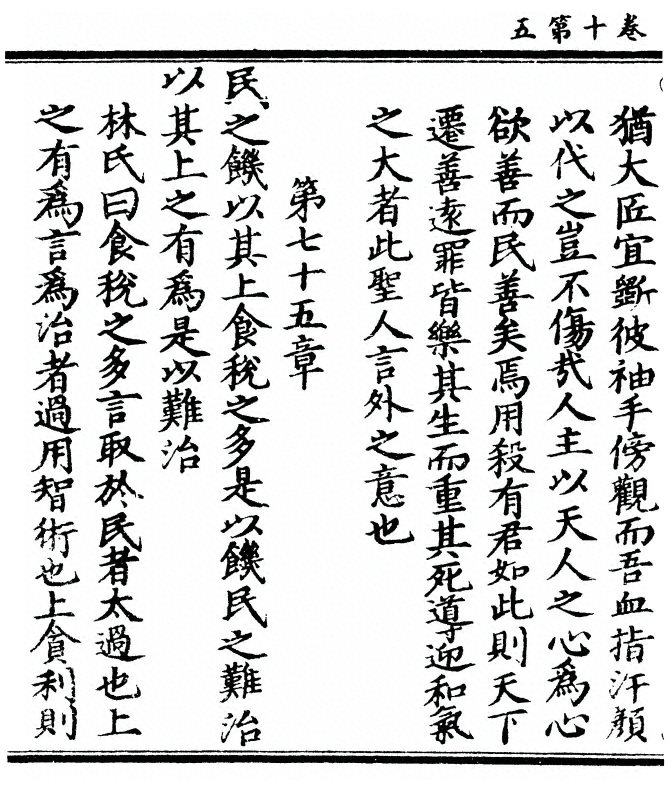 卷十第五
猶大匠宜斲彼袖手傍觀而吾血指汗顏
以代之豈不傷哉人主以天人之心爲心
欲善而民善矣焉用殺有君如此則天下
遷善遠罪皆樂其生而重其死導迎和氣
之大者此聖人言外之意也
第七十五章
民之饑以其上食稅之多是以饑民之難治
以其上之有爲是以難治
林氏曰食稅之多言取於民者太過也上
之有爲言爲治者過用智術也上貪利則